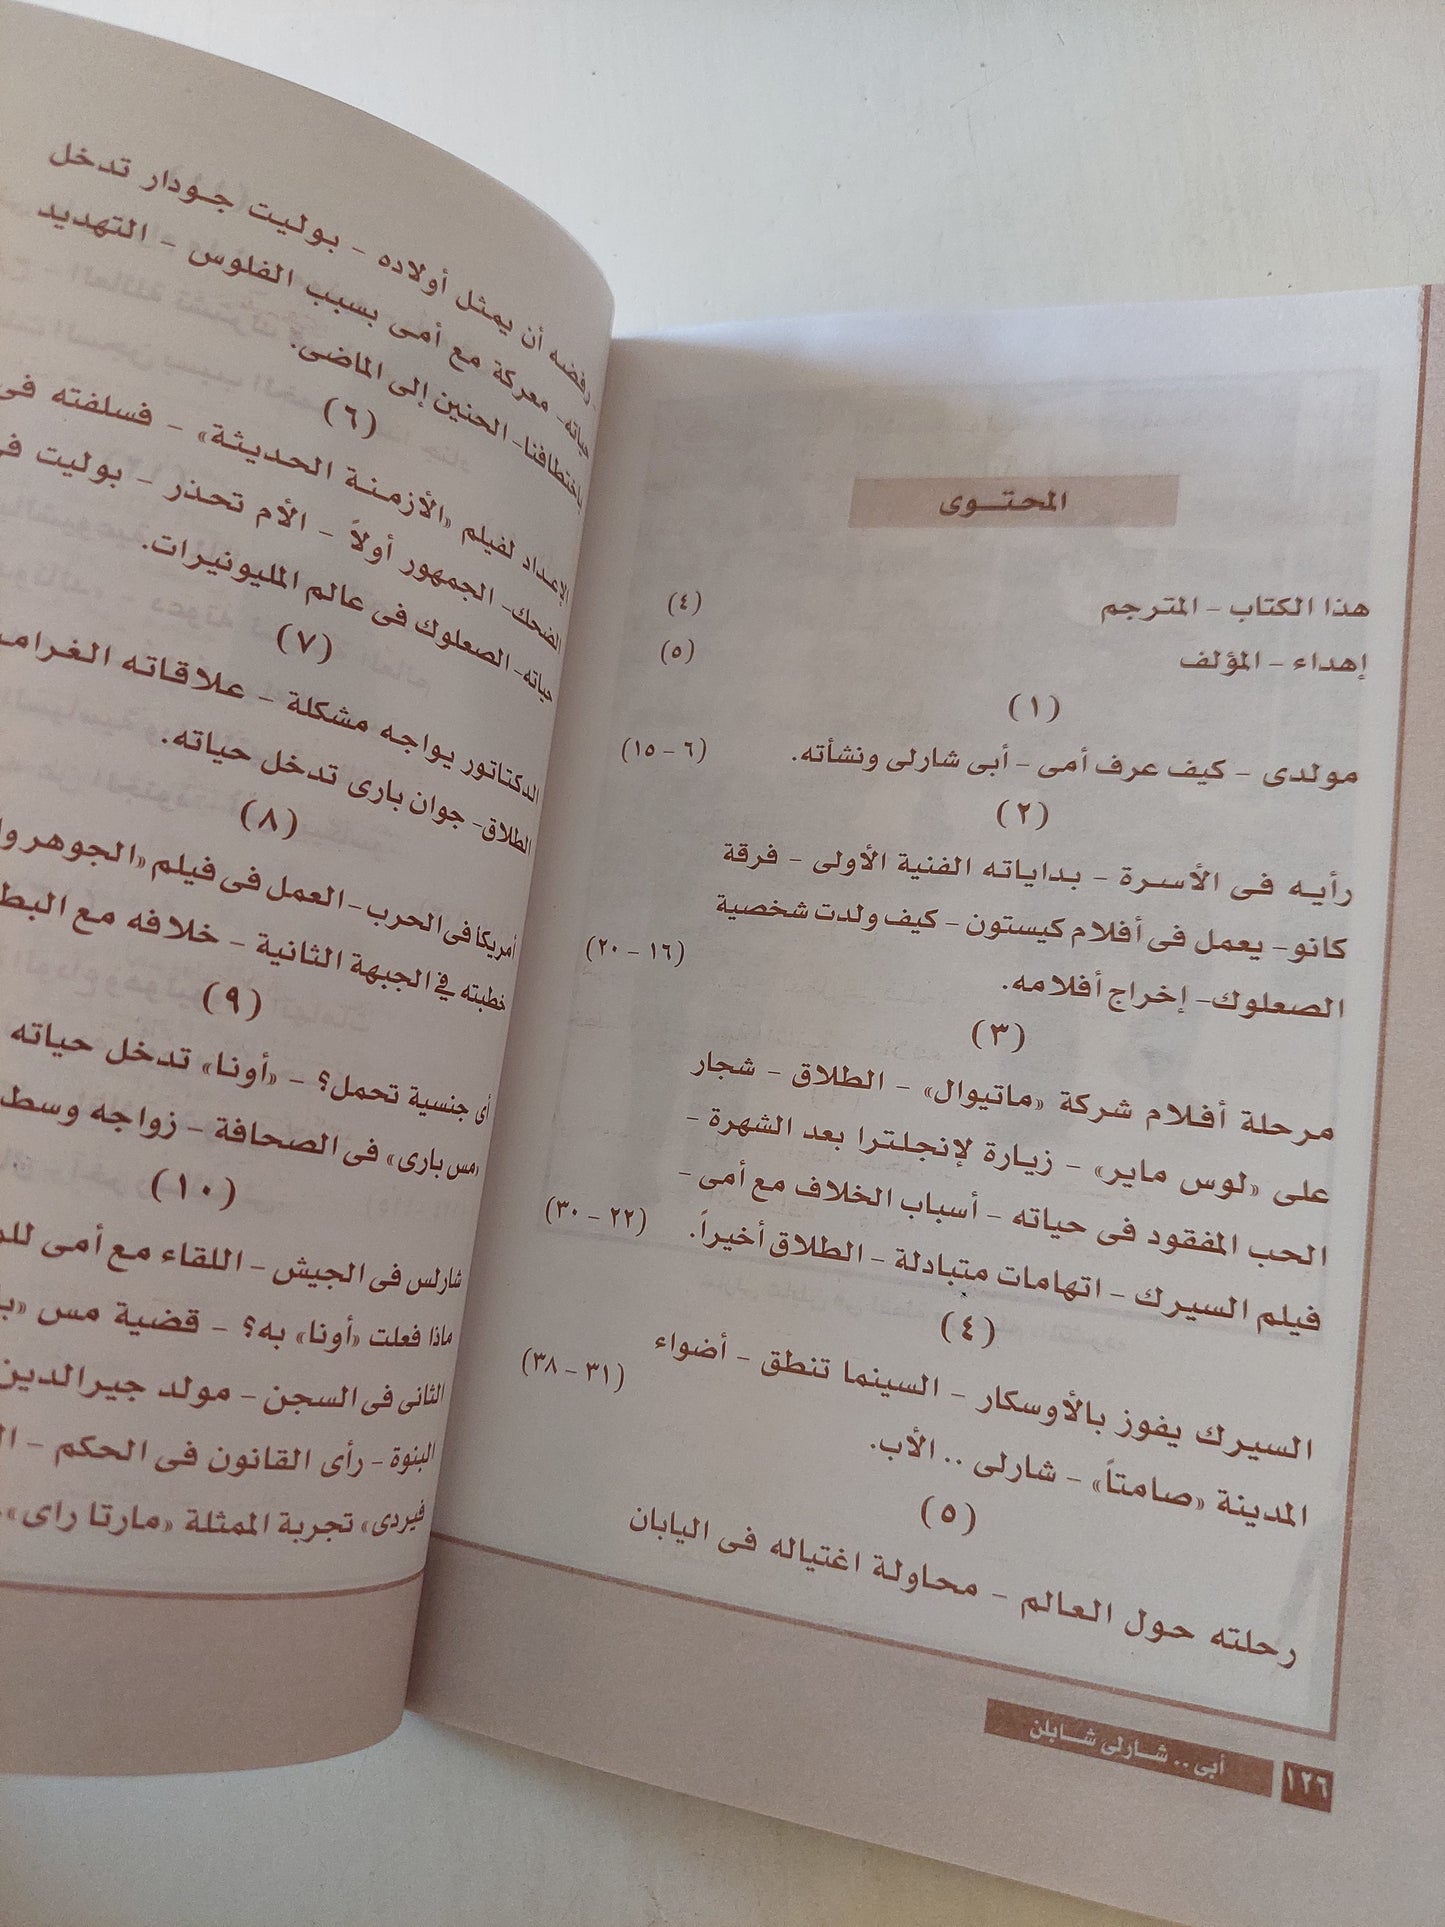 المحتوى
هذا الكتاب - المترجم (٤)
إهداء - المؤلف (٥)
(١)
مولدى - كيف عرف أمى - أبى شارلى ونشأته. (٦ - ١٥)
(٢)
رأيه فى الأسرة - بداياته الفنية الأولى - فرقة
كانو - يعمل فى أفلام كيستون - كيف ولدت شخصية
الصعلوك - إخراج أفلامه. (١٦ - ٢٠)
(٣)
مرحلة أفلام شركة «ماتيوال» - الطلاق - شجار
على «لوس ماير» - زيارة لإنجلترا بعد الشهرة -
الحب المفقود فى حياته - أسباب الخلاف مع أمى -
فيلم السيرك - اتهامات متبادلة - الطلاق أخيراً. (٢٢ - ٣٠)
(٤)
السيرك يفوز بالأوسكار - السينما تنطق - أضواء
المدينة «صامتاً» - شارلى .. الأب. (٣١ - ٣٨)
(٥)
رحلته حول العالم - محاولة اغتياله فى اليابان
١٢٦ أبى .. شارلى شابلن
- رفضه أن يمثل أولاده - بوليت جودار تدخل
حياته - معركة مع أمى بسبب الفلوس - التهديد
باختطافنا - الحنين إلى الماضى.
(٦)
الإعداد لفيلم «الأزمنة الحديثة» - فسلفته فى
الضحك - الجمهور أولاً - الأم تحذر - بوليت
حياته - الصعلوك فى عالم المليونيرات.
(٧)
الدكتاتور يواجه مشكلة - علاقاته
الطلاق - جوان بارى تدخل حياته.
(٨)
أمريكا فى الحرب - العمل فى فيلم «الجوهر
خطبته في الجبهة الثانية - خلافه مع
(٩)
أى جنسية تحمل؟ - «أونا» تدخل حياته
«مس بارى» فى الصحافة - زواجه وسط
(١٠)
شارلس فى الجيش - اللقاء مع أمى
ماذا فعلت «أونا» به؟ - قضية مس
الثانى فى السجن - مولد جيرالدين
البنوة - رأى القانون فى الحكم -
فيردى» تجربة الممثلة «مارتا راى».